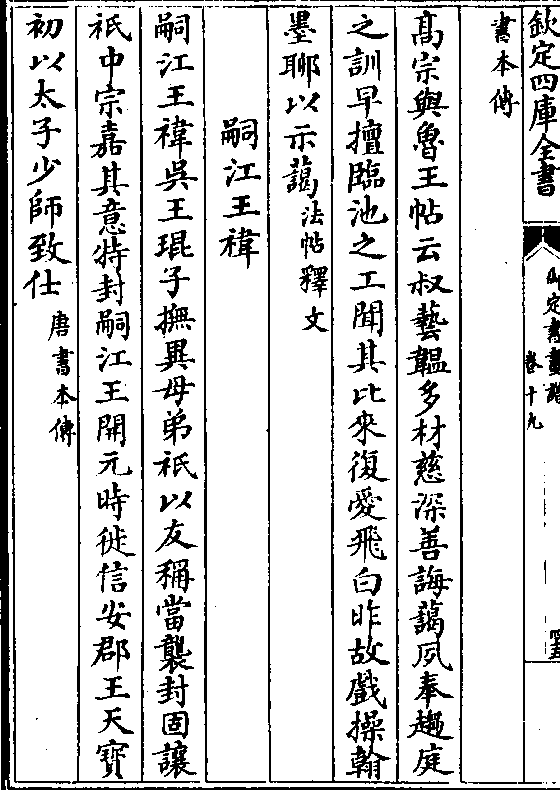 欽定四庫全書
定書畫譜
卷十九
書本傳
高宗與魯王帖云叔藝韞多材慈深善誨藹夙奉趨庭
之訓早擅臨池之工聞其比來復愛飛白昨故戲操翰
墨聊以示藹法帖釋文
嗣江王禕
嗣江王禕吳王琨子撫異母弟祇以友稱當襲封固讓
祇中宗嘉其意特封嗣江王開元時徙信安郡王天寶
初以太子少師致仕唐書本傳